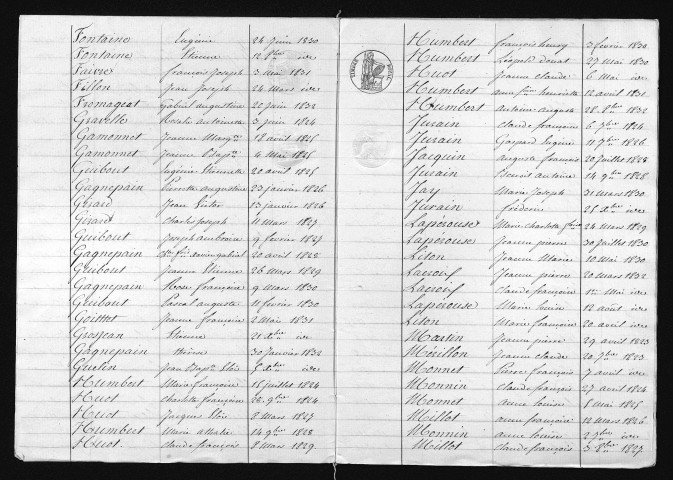 Fontaine Eugène 24 Juin 1830
Fontaine Etienne 12 8bre id
Faivre françois Joseph 3 Mai 1831
Fillon Jean Joseph 24 Mars id
Fromageot gabriel augustine 22 juin 1832
Gravelle antoinette 3 juin 1824
Gamonnet Jeanne Margte 18 avril 1825
Gamonnet Jeanne Bapte 4 Mai 1825
Guibout Eugénie Etiennette 20 avril 1825
Gagnepain Pierrette augustine 23 janvier 1826
Girard Jean Victor 13 janvier 1826
Girard Charles Joseph 11 Mars 1827
Guibout Joseph ambroise 9 février 1827
Gagnepain gabriel 20 avril 1828
Guibout Jeanne Etienne 26 Mars 1829
Gagnepain Rose françoise 9 Mars 1830
Guibout Pascal auguste 11 février 1830
Jeanne françoise 2 Mai 1831
Grosjean Etienne 21 Xbre id
Gagnepain thérèse 30 Janvier 1832
Guelin Jean Bapte Eloi 5 Xbre id
Humbert Marie françoise 15 juillet 1824
Huot Charlotte françoise 28 9bre 1824
Huot Jacques Eloi 8 Mars 1827
Humbert Marie 14 9bre 1828
Huot Claude françois 8 Mars 1829
Humbert françois henry 3 février 1830
Humbert Léopold Donat 27 Mai 1830
Huot Jeanne Claude 6 Mai id
Humbert anne fse henriette 12 avril 1831
Humbert Antoine auguste 28 8bre 1832
Jurain Claude françoise 6 7bre 1824
Jurain Gaspard Eugène 11 7bre 1826
Jacquin auguste françois 20 Juillet 1828
Jurain Benoit Antoine 14 9bre 1828
Jay Marie Joseph 31 Mars 1830
Jurain frédéric 25 Xbre id
Lapérouse Marie Charlotte fse 24 Mars 1829
Lapérouse Jeanne pierre 30 Juillet 1830
Liton Jeanne Marie 10 Mai 1830
Lacroix Jeanne pierre 20 Mars 1832
Lacroix Claude françoise 1er Mai id
Lapérouse Marie louise 12 août id
Liton Marie françoise 20 avril id
Martin Jeanne pierre 29 avril 1823
Mérillon Jeanne Claude 20 7bre 1823
Monnet Pierre françois 7 avril id
Monnin Claude françois 27 avril 1824
Monnet anne louise 8 Mai 1825
Millot anne françoise 12 Mars 1826
Monnin anne louise id
Millot Claude françois 3 8bre 1827